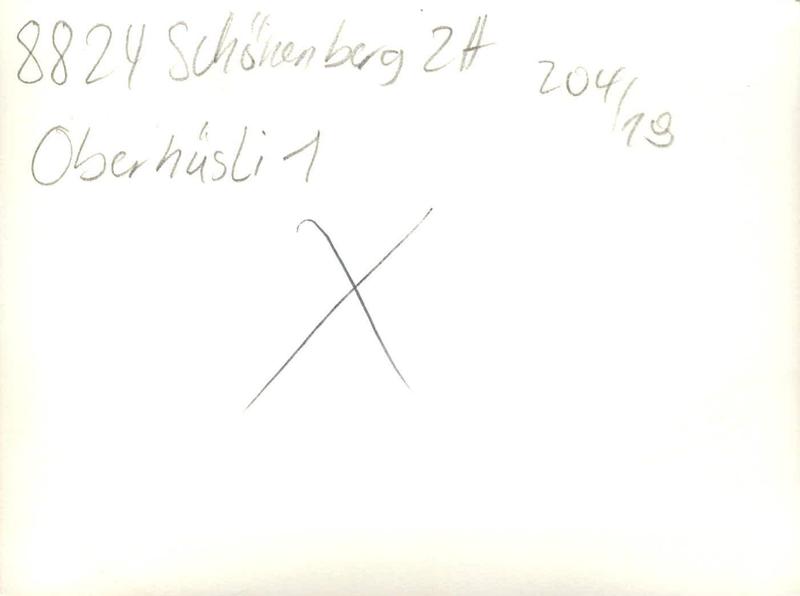 8824 Schönenberg ZH
204/19
Oberhüsli 1
X